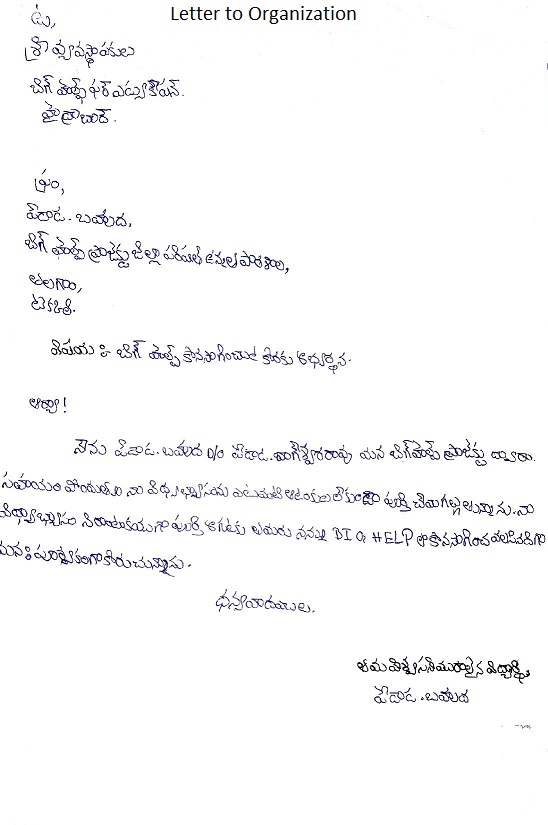 Letter to Organization
టు,
శ్రీ వ్యవస్థాపకులు
బిగ్ హెల్ప్ ఫర్ ఎడ్యుకేషన్.
హైద్రాబాద్.
ఫ్రం,
పేడాడ.
బిగ్ హెల్ప్ ప్రాజెక్టు జిల్లా పరిషత్ ఉన్నత పాఠశాల,
తలగాం,
టెక్కలి.
విషయం :- బిగ్ హెల్ప్ కొనసాగించుట కొరకు అభ్యర్థన.
అయ్యా!
నేను పేడాడ. D/o పేడాడ. మన బిగ్ హెల్ప్ ప్రాజెక్టు ద్వారా
సహాయం పొందుతూ నా విద్యాభ్యాసమును ఎటువంటి ఆటంకం లేకుండా పూర్తి చేయగల్గుతున్నాను. నా
విద్యాభ్యాసం నిరాటంకముగా పూర్తి అగుటకు తమరు నన్ను BIG HELP లో కొనసాగించవలసినదిగా
మనఃపూర్వకంగా కోరుచున్నాను.
ధన్యవాదములు.
తమ విశ్వసనీయురాలైన విద్యార్థిని
పేడాడ.